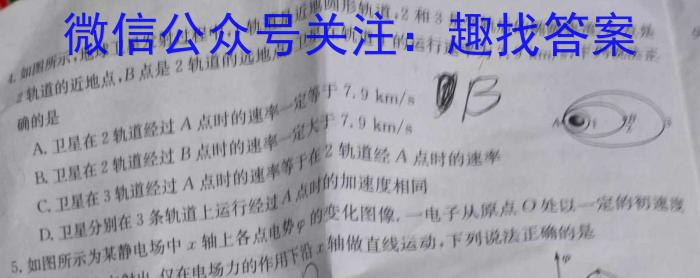 微信公众号关注：趣找答案
4. 如图所示,
圆形轨道,2和3
2轨道的近地点,B点是2轨道的远地
的运行速
7.9 km/s
确的是
A. 卫星在2轨道经过A点时的速率一定等于7.9 km/s
B
B. 卫星在2轨道经过B点时的速率一定大于7.9 km/s
C. 卫星在3轨道经过A点时的速率等于在2轨道经A点时的速率
D. 卫星分别在3条轨道上运行经过A点时的加速度相同
5. 如图所示为某静电场中x轴上各点电势φ的变化图像,一电子从原点O处以一定的初速度
仅在电场力的作用下沿x轴做直线运动,下列说法正确的是
A
1
2
φ